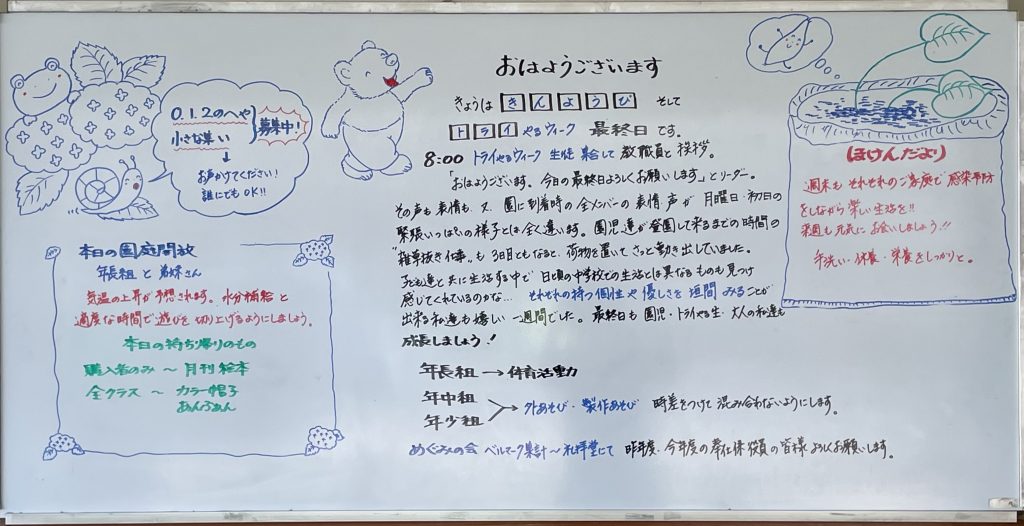 0.1.2のへや
小さな集い
募集中!
↓
お声かけてください!
誰にでもOK!!
本日の園庭開放
年長組と弟妹さん
気温の上昇が予想されます。水分補給と
適度な時間で遊びを切り上げるようにしましょう。
本日の持ち帰りのもの
購入者のみ〜月刊絵本
全クラス〜カラー帽子
あんふぁん
おはようございます
きょうは きんようび そして
トライやるウィーク 最終日です。
8:00 トライやるウィーク生徒集合して教職員と挨拶。
「おはようございます。今日の最終日よろしくお願いします」とリーダー。
その声も表情も、又、園に到着時の全メンバーの表情、声が月曜日・初日の
緊張いっぱいの様子とは全く違います。園児達が登園して来るまでの時間の
"雑草抜き仕事"も3日目ともなると、荷物を置いてさっと動き出していました。
子ども達と共に生活する中で日頃の中学校での生活とは異なるものも見つけ
感じてくれているのかな… それぞれの持つ個性や優しさを垣間みることが
出来る私達も嬉しい一週間でした。最終日も園児・トライやる生・大人の私達も
成長しましょう!
年長組→体育活動
年中組
年少組
→外あそび・製作あそび 時差をつけて混み合わないようにします。
めぐみの会 ベルマーク集計〜礼拝堂にて 昨年度・今年度の奉仕係役員の皆様よろしくお願いします。
ほけんだより
週末もそれぞれのご家庭で感染予防
をしながら楽しい生活を!!
来週も元気にお会いしましょう!!
手洗い・休養・栄養をしっかりと。